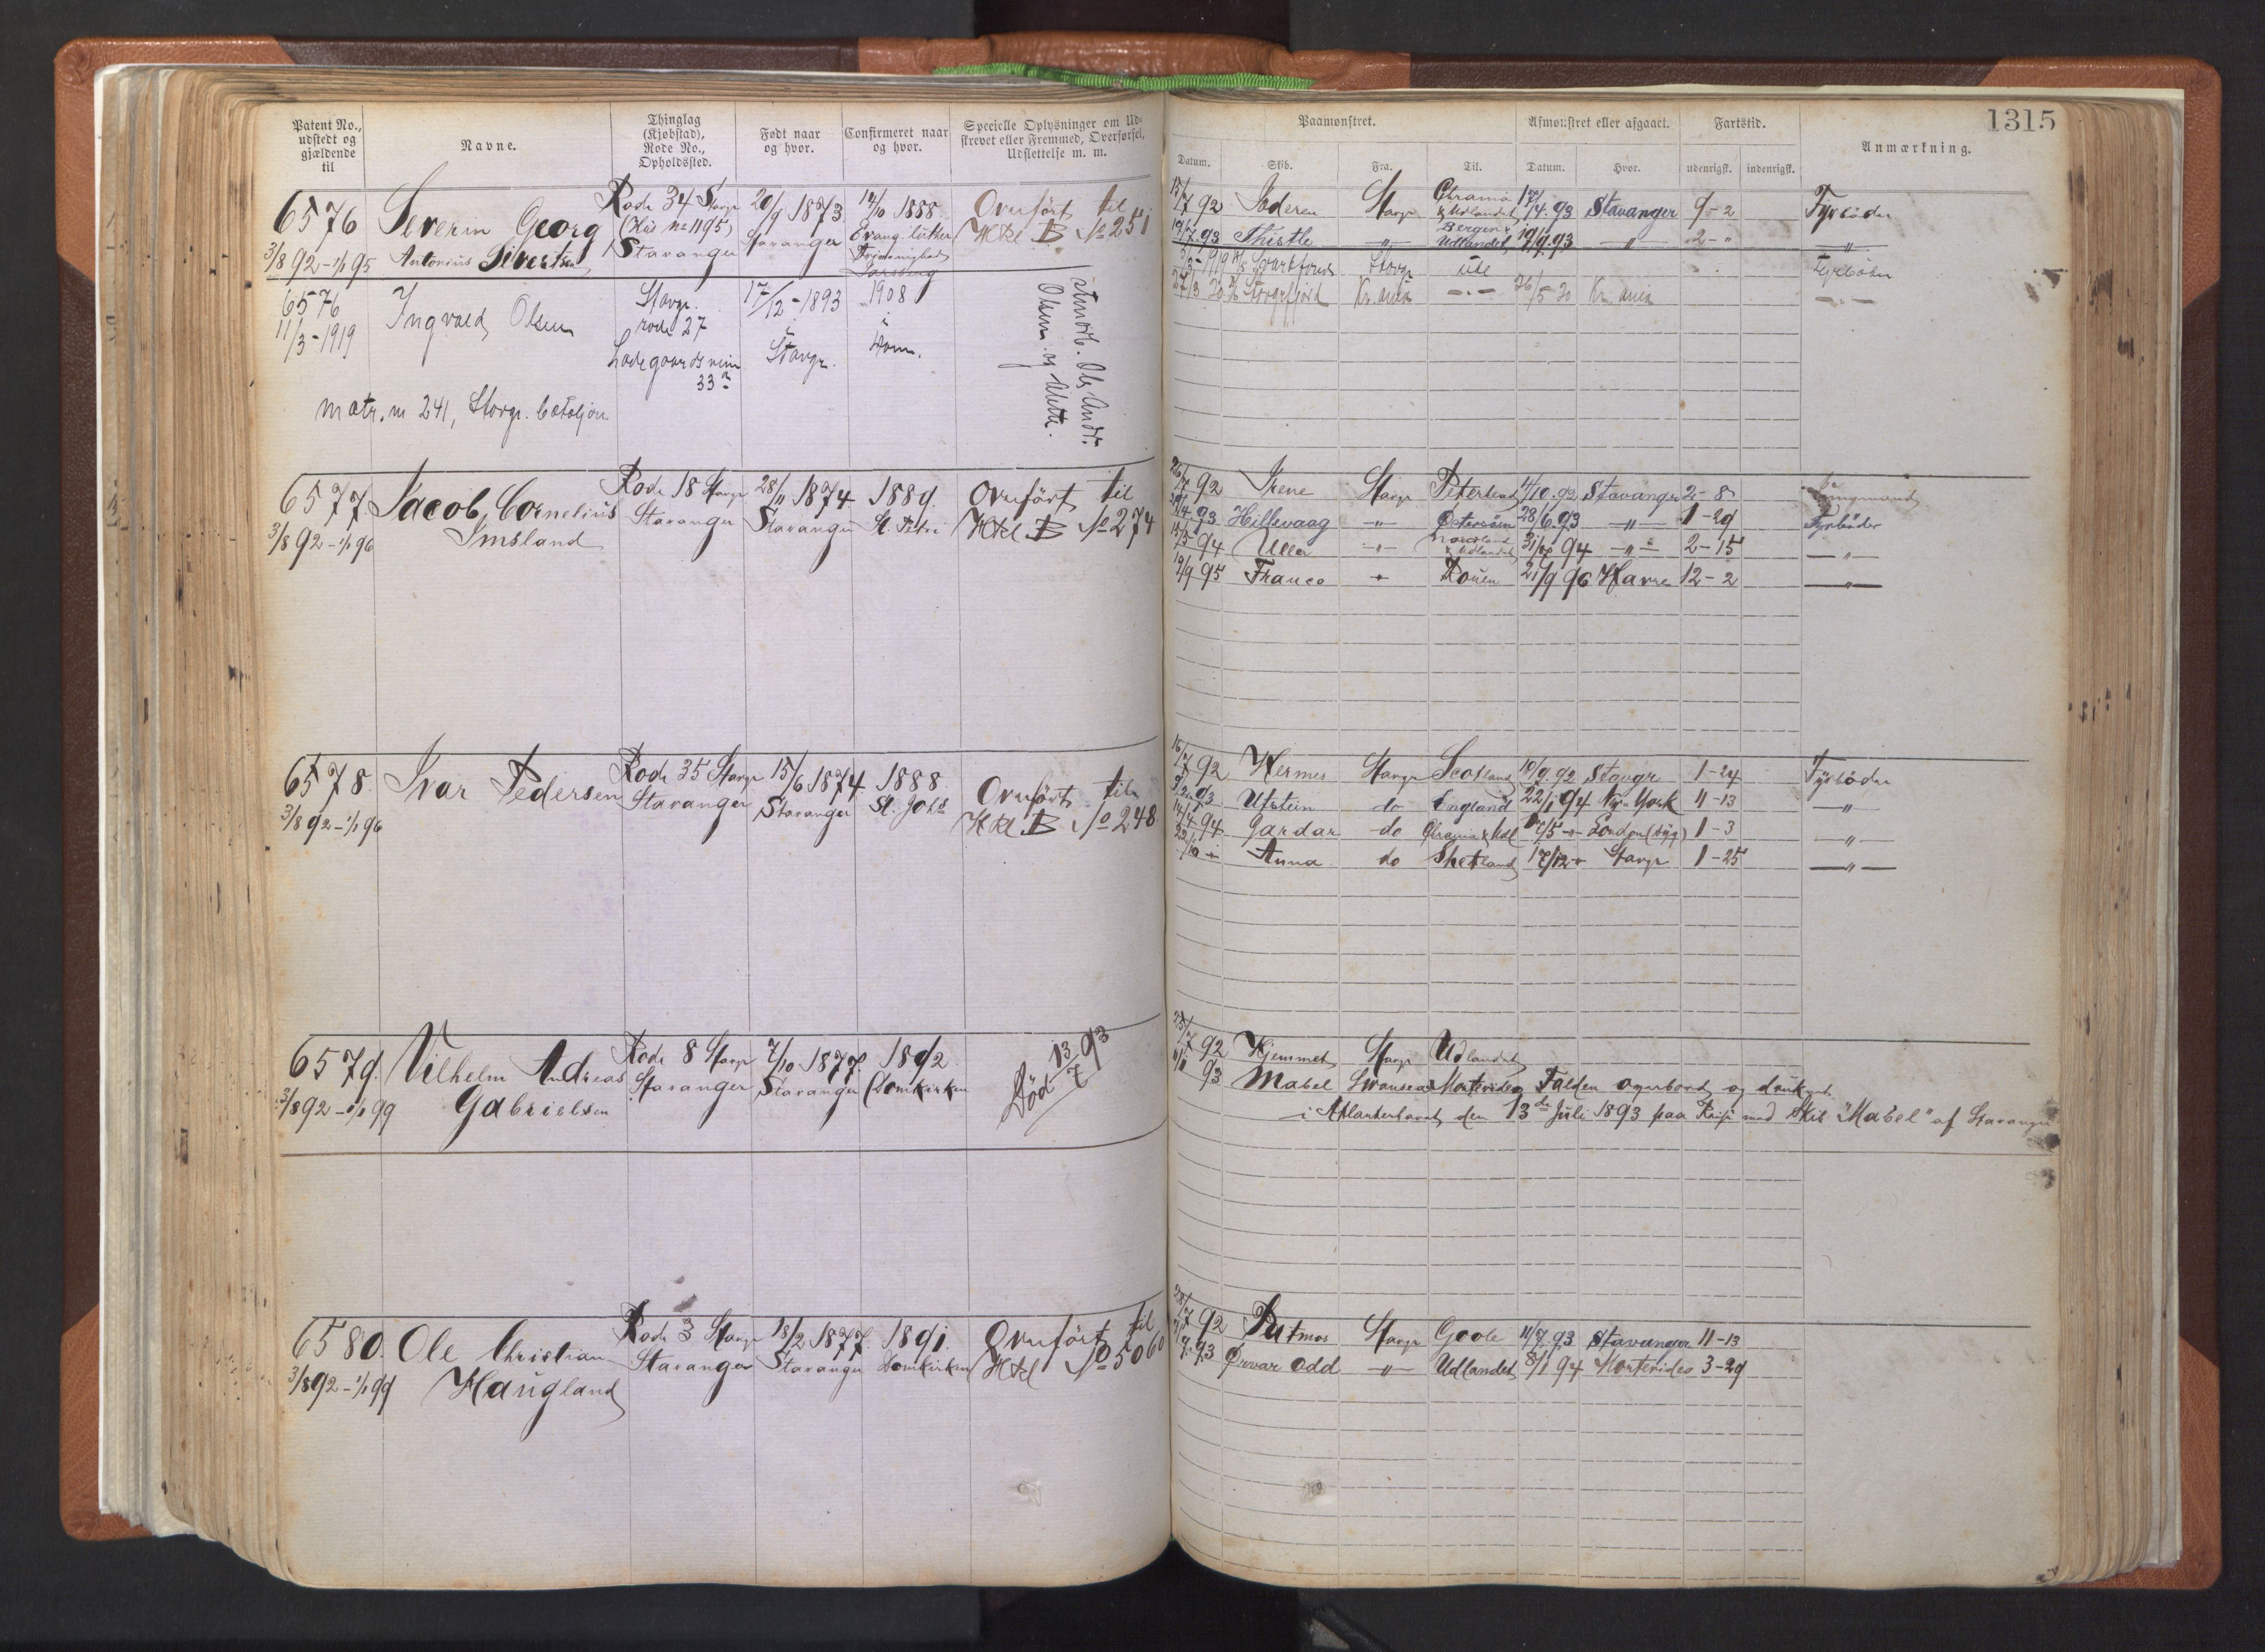 1315
Patent No., udstedt og gjældende til
Navne.
Thinglag (Kjøbstad), Rode No., Opholdssted.
Født naar og hvor.
Confirmeret naar og hvor.
Specielle Oplysninger om Udskrevet eller Fremmed, Overførsel, Udslettelse m. m.
Paamønstret.
Afmønstret eller afgaaet.
Fartstid.
Anmærkning.
Datum.
Skib.
Fra.
Til.
Datum.
Hvor.
udenrigsk.
indenrigsk.
6576 Severin Georg Rode 34 Stavgr 20/9 1873 1888. Overført til
(Hus No 1195) Stavanger Evang. luther HRL B. No 251
3/8 92 - 1/1 95 Antonius Sivertsen Stavanger
15/7 92 Jæderen Stavgr Chrania & Udlandet 17/4 93 Stavanger 9-2 Fyrbøder
93 Thistle " Bergen & Udlandet 19/9 93 " 2-" "
Stavgr Ude Fyrbøder
Kr.ania 26/5 20 Kr.ania
6576 Ingvald Olsen Stavgr. 17/12-1893 1908
11/3-1919 rode 27 i i
Ladegaardsvein Stavgr. Dom.
33
Olsen og Mette.
matr. nr 241, Stavgr. bataljon
6577 Jacob Cornelius Rode 18 Stavgr 28/11 1874 1889. Overført til
3/8 92 - 1/1 96 Imsland Stavanger Stavanger St. Petri HRL B No 274
26/7 92 Irene Stavgr Peterhead 4/10 92 Stavanger 2-8 Lempmand
93 Hillevaag " Østersøen 28/6 93 " 1-29 Fyrbøder
15/5 94 Uller " Nordland & Udlandet 94 " 2-15 "
19/9 95 Franco " Rouen 21/9 96 Havre 12-2 "
6578. Ivar Pedersen Rode 35 Stavgr 15/6 1874 1888 Overført til
3/8 92 - 1/1 96 Stavanger Stavanger St. Johs HRL B No 248
16/7 92 Hermes Stavgr Scotland 10/9 92 Stavgr 1-24 Fyrbøder
93 Utstein do England 22/1 94 New-York 11-13 "
94 Gardar do Chrania & Udl /5 " London 1-3 "
22/10 " Anna do Shetland 17/12 " Stavgr 1-25 "
6579. Vilhelm Andreas Rode 8 Stavgr 7/10 1877. 1892
3/8 92 - 1/1 99 Gabrielsen Stavanger Stavanger Domkirken
Død 13/7 93
25/7 92 Hjemmet Stavgr Udlandet
93 Mabel Swansea Montevideo Falden overbord og druknet
i Atlanterhavet den 13de Juli 1893 paa Reise med Skib "Mabel" af Stavanger
6580. Ole Christian Rode 3 Stavgr 18/2 1877. 1891. Overført til
3/8 92 - 1/1 99 Haugland Stavanger Stavanger Domkirken HRL No 5060
28/7 92 Patmos Stavgr Goole 11/7 93 Stavanger 11-13
93 Ørvar Odd " Udlandet 8/1 94 Montevideo 3-29